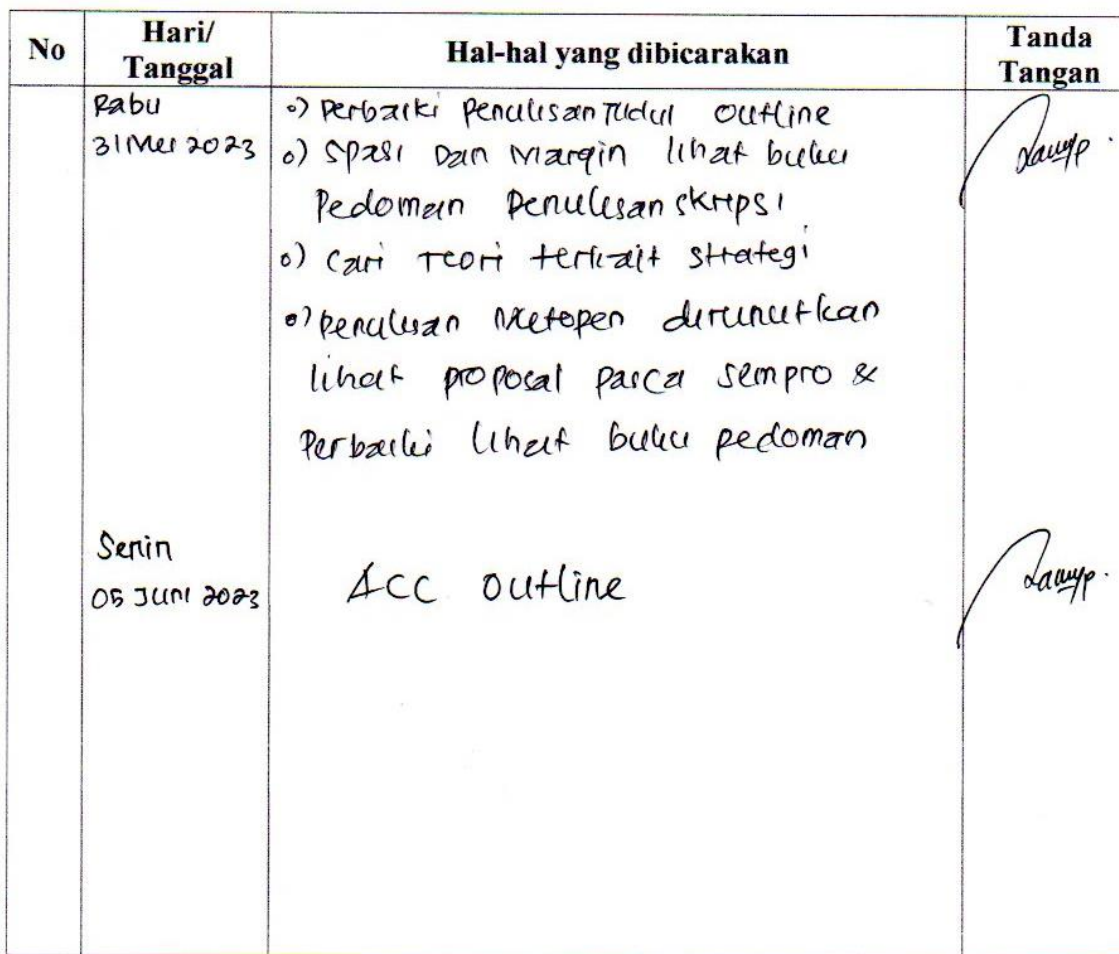 No
Hari/
Tanggal
Hal-hal yang dibicarakan
Tanda
Tangan
Rabu
31 Mei 2023
o) Perbaiki Penulisan Judul Outline
o) Spasi Dan Margin lihat buku
Pedoman Penulisan skripsi
o) Cari Teori terkait strategi
o) Penulisan Metopen dirunutkan
lihat proposal pasca sempro &
Perbaiki lihat buku pedoman
Senin
05 Juni 2023
ACC Outline